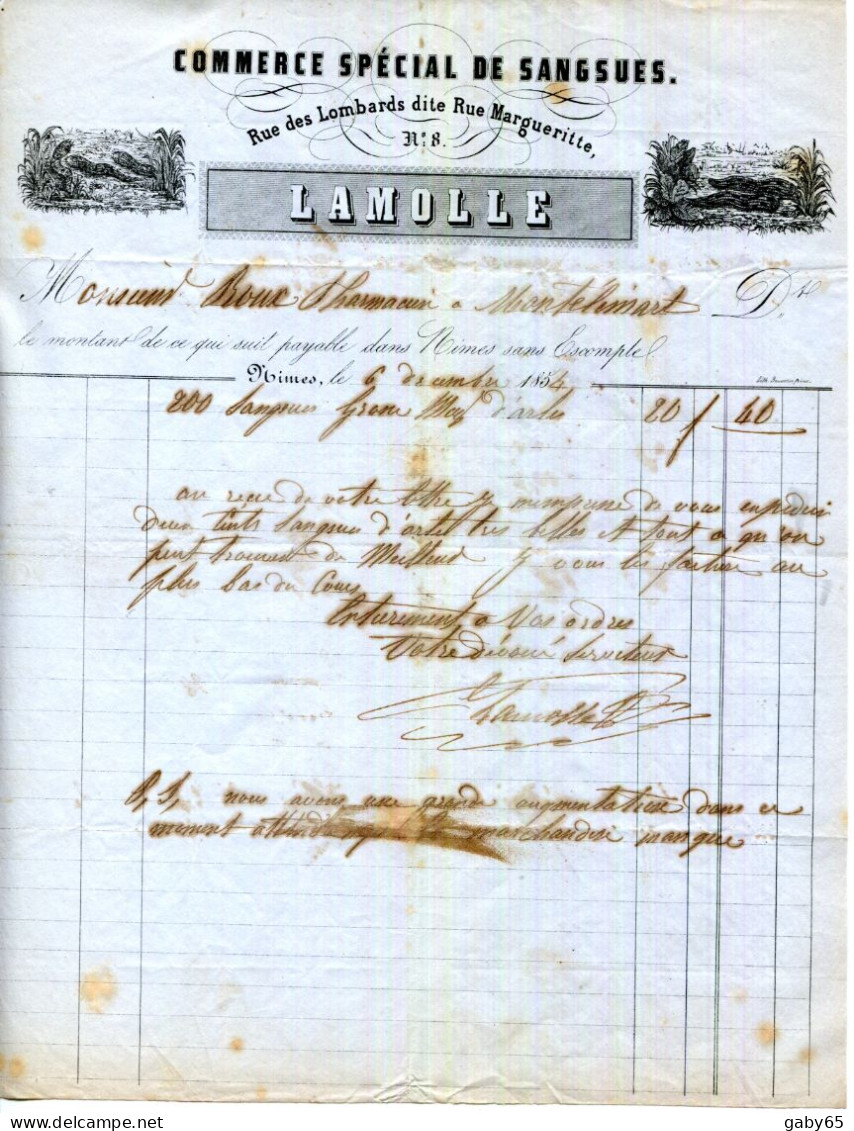 COMMERCE SPÉCIAL DE SANGSUES.
Rue des Lombards dite Rue Margueritte,
N° 8.
LAMOLLE
Monsieur Roux Pharmacien a Montélimart D.t
le montant de ce qui suit payable dans Nimes sans Escompte.
Nimes, le 6 decembre 1854
200 Sangsues Grosse Moy d'arles 20 f 40
au reçu de votre lettre je mempresse de vous expedier
deux cents Sangsues d'arles tres belles et tout ce qu'on
peut trouver de Meilleur je vous les facture au
plus bas du Cours
Entierement a Vos ordres
Votre dévoué serviteur
Lamolle
P, S, nous avons une grande augmentation dans ce
moment attendu que la marchandise manque
delcampe.net
gaby65